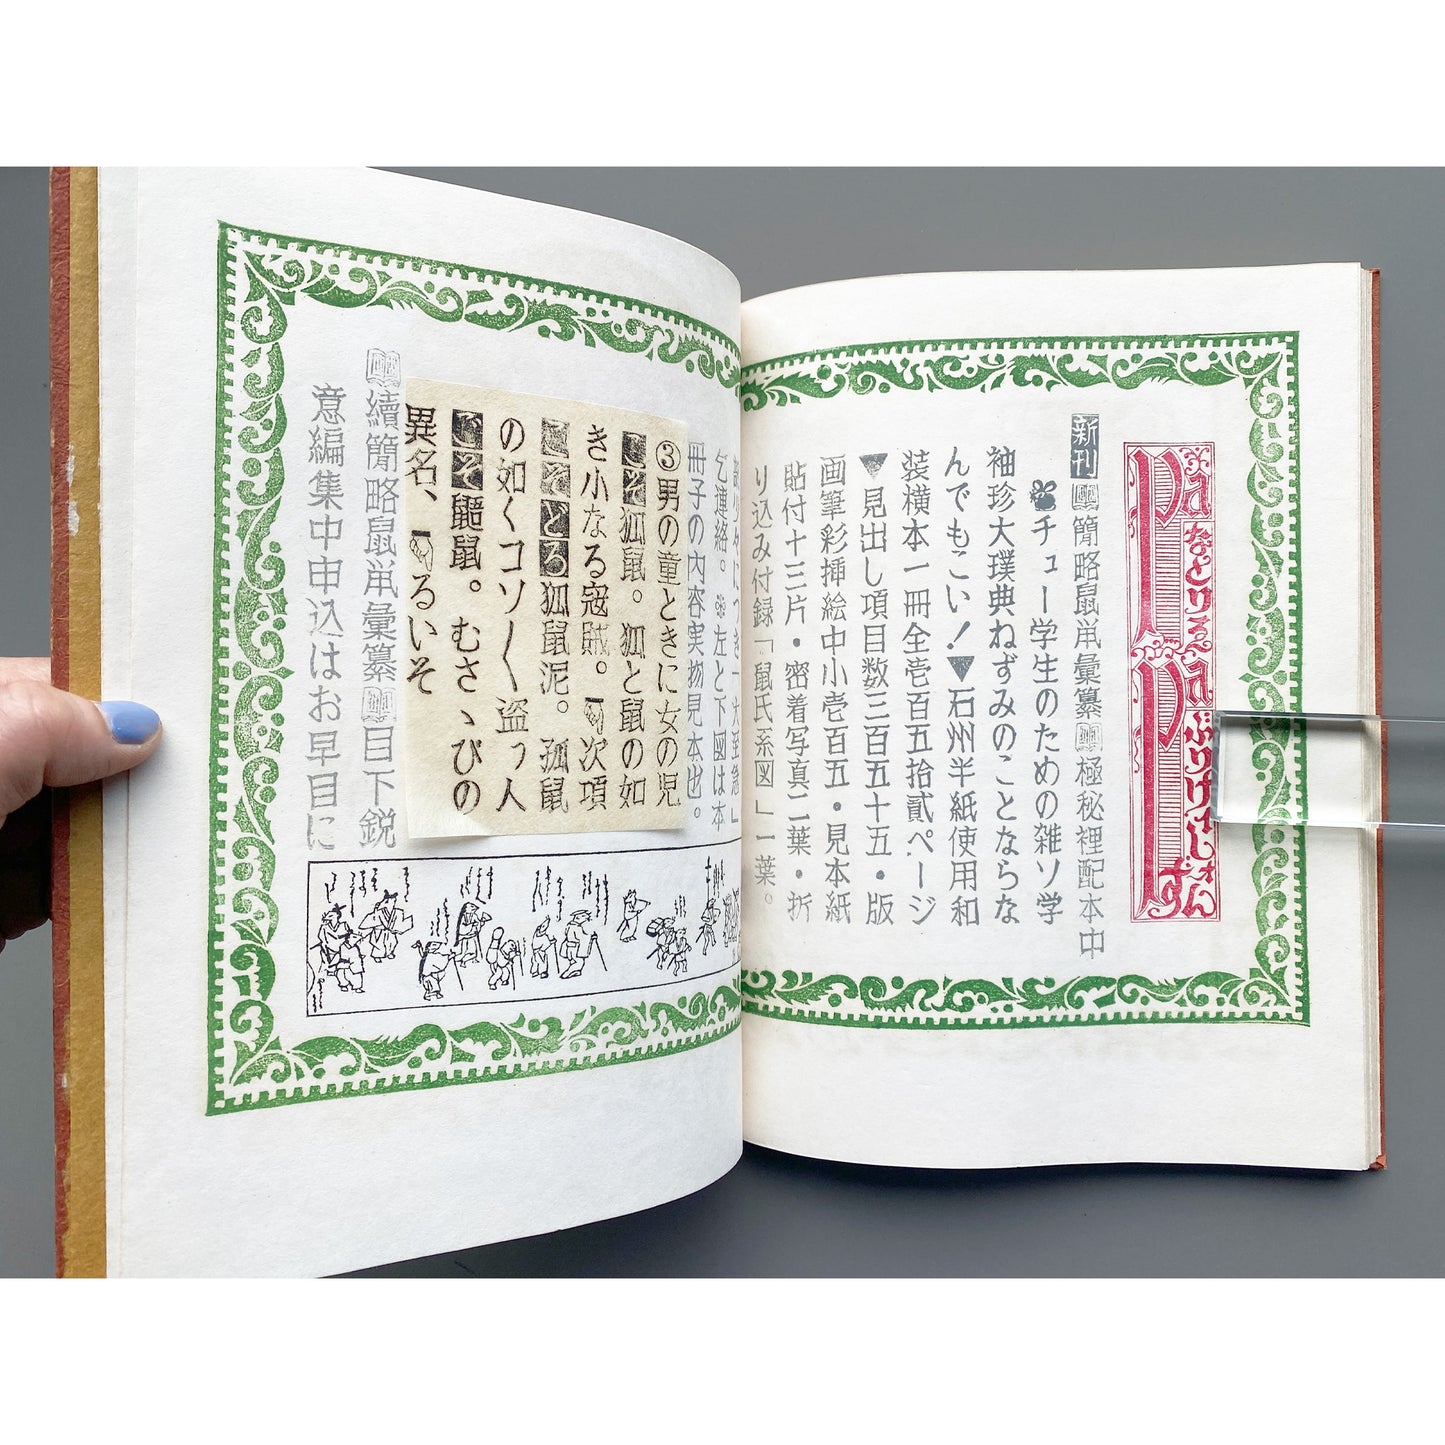 Pa Pa
なとりゑ ぶりけィしョずん
新刊 簡略鼠歯彙纂 極秘裡配本中
チュー学生のための雑ソ学
袖珍大璞典ねずみのことならな
んでもこい!▼石州半紙使用和
装横本一冊全壱百五拾貳ページ
▼見出し項目数三百五十五・版
画筆彩挿絵中小壱百五・見本紙
貼付十三片・密着写真二葉・折
り込み付録「鼠氏系図」一葉。
乞連絡。左と下図は本
冊子の内容実物見本也。
③男の童ときに女の児
こそ狐鼠。狐と鼠の如
き小なる寇賊。次項
こそどろ狐鼠泥。孤鼠
の如くコソ〱盗っ人
でそ鼯鼠。むさゝびの
異名、るいそ
續簡略鼠歯彙纂 目下鋭
意編集中申込はお早目に